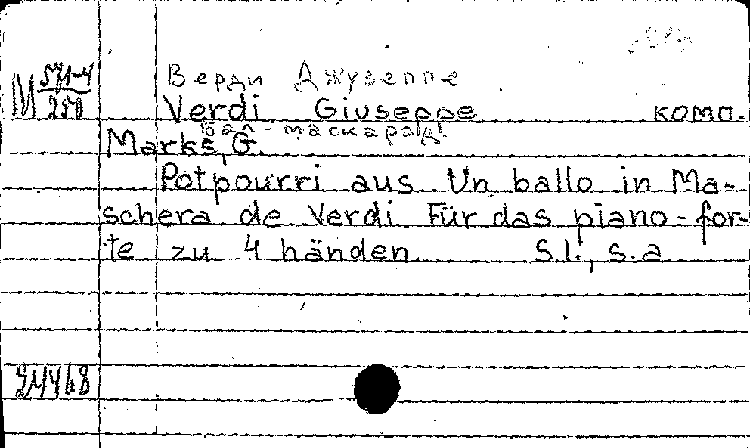 М 571-4
250
Верди Джузеппе
Verdi Giuseppe комп.
Бал-маскарад
Marks, G.
Potpourri aus Un ballo in Ma-
schera de Verdi Für das piano-for-
te zu 4 händen S.l., s.a